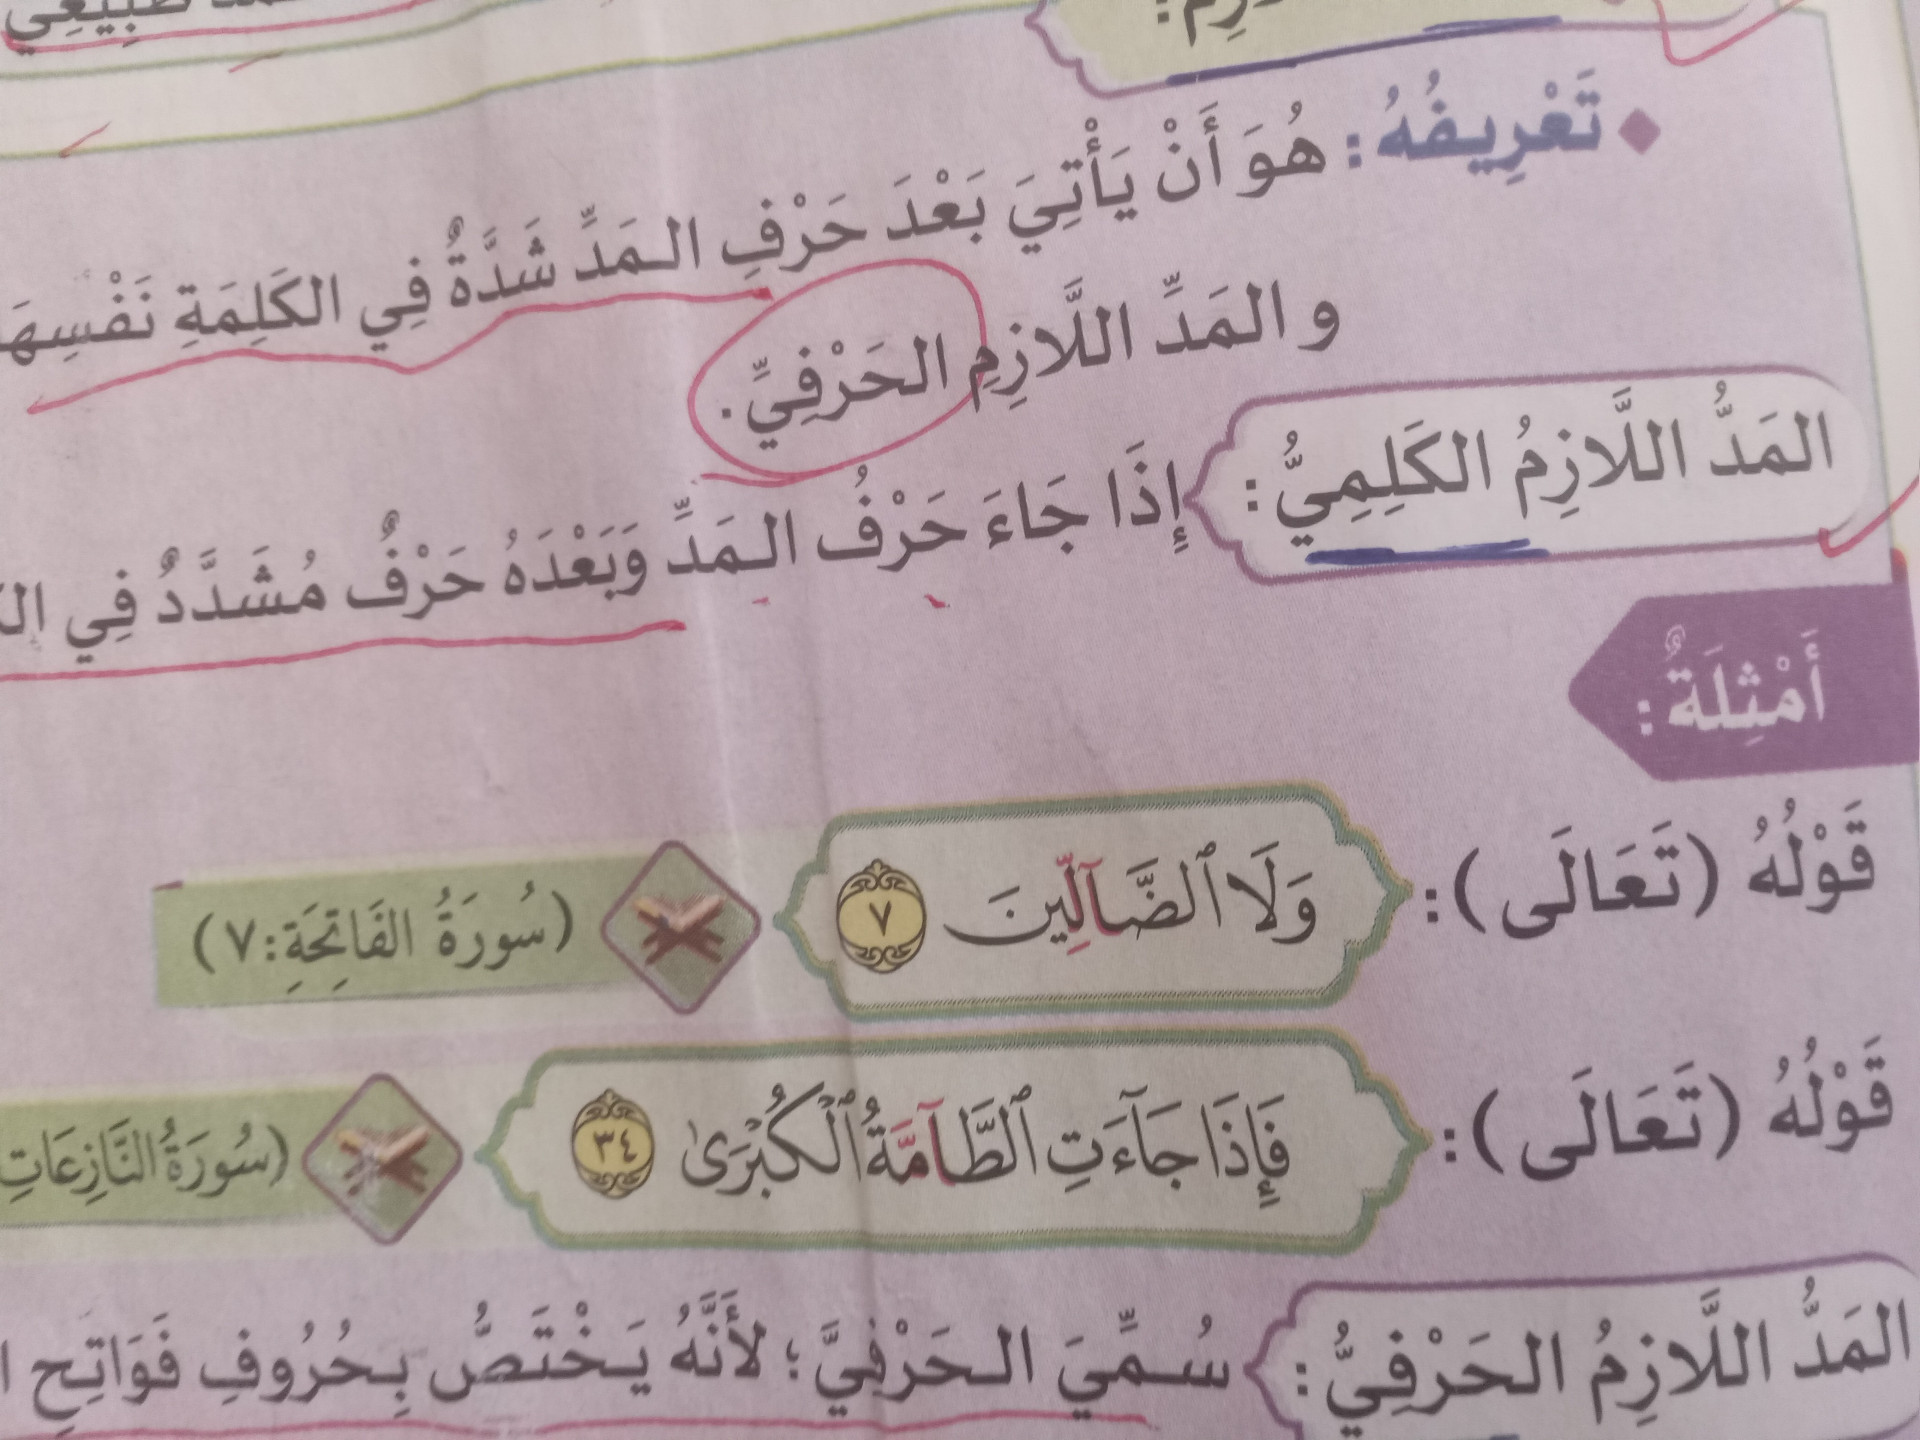 تَعْرِيفُهُ: هُوَ أَنْ يَأْتِيَ بَعْدَ حَرْفِ المَدِّ شَدَّةٌ فِي الكَلِمَةِ نَفْسِهَا
و المَدِّ اللَّازِمِ الحَرْفِيِّ.
المَدُّ اللَّازِمُ الكَلِمِيُّ: إِذَا جَاءَ حَرْفُ المَدِّ وَبَعْدَهُ حَرْفٌ مُشَدَّدٌ فِي
أَمْثِلَةٌ:
قَوْلُهُ (تَعَالَى): وَلَا ٱلضَّآلِّينَ ٧ (سُورَةُ الفَاتِحَةِ: ٧)
قَوْلُهُ (تَعَالَى): فَإِذَا جَآءَتِ ٱلطَّآمَّةُ ٱلْكُبْرَىٰ ٣٤ (سُورَةُ النَّازِعَاتِ
المَدُّ اللَّازِمُ الحَرْفِيُّ: سُمِّيَ الحَرْفِيَّ؛ لأَنَّهُ يَخْتَصُّ بِحُرُوفِ فَوَاتِحِ